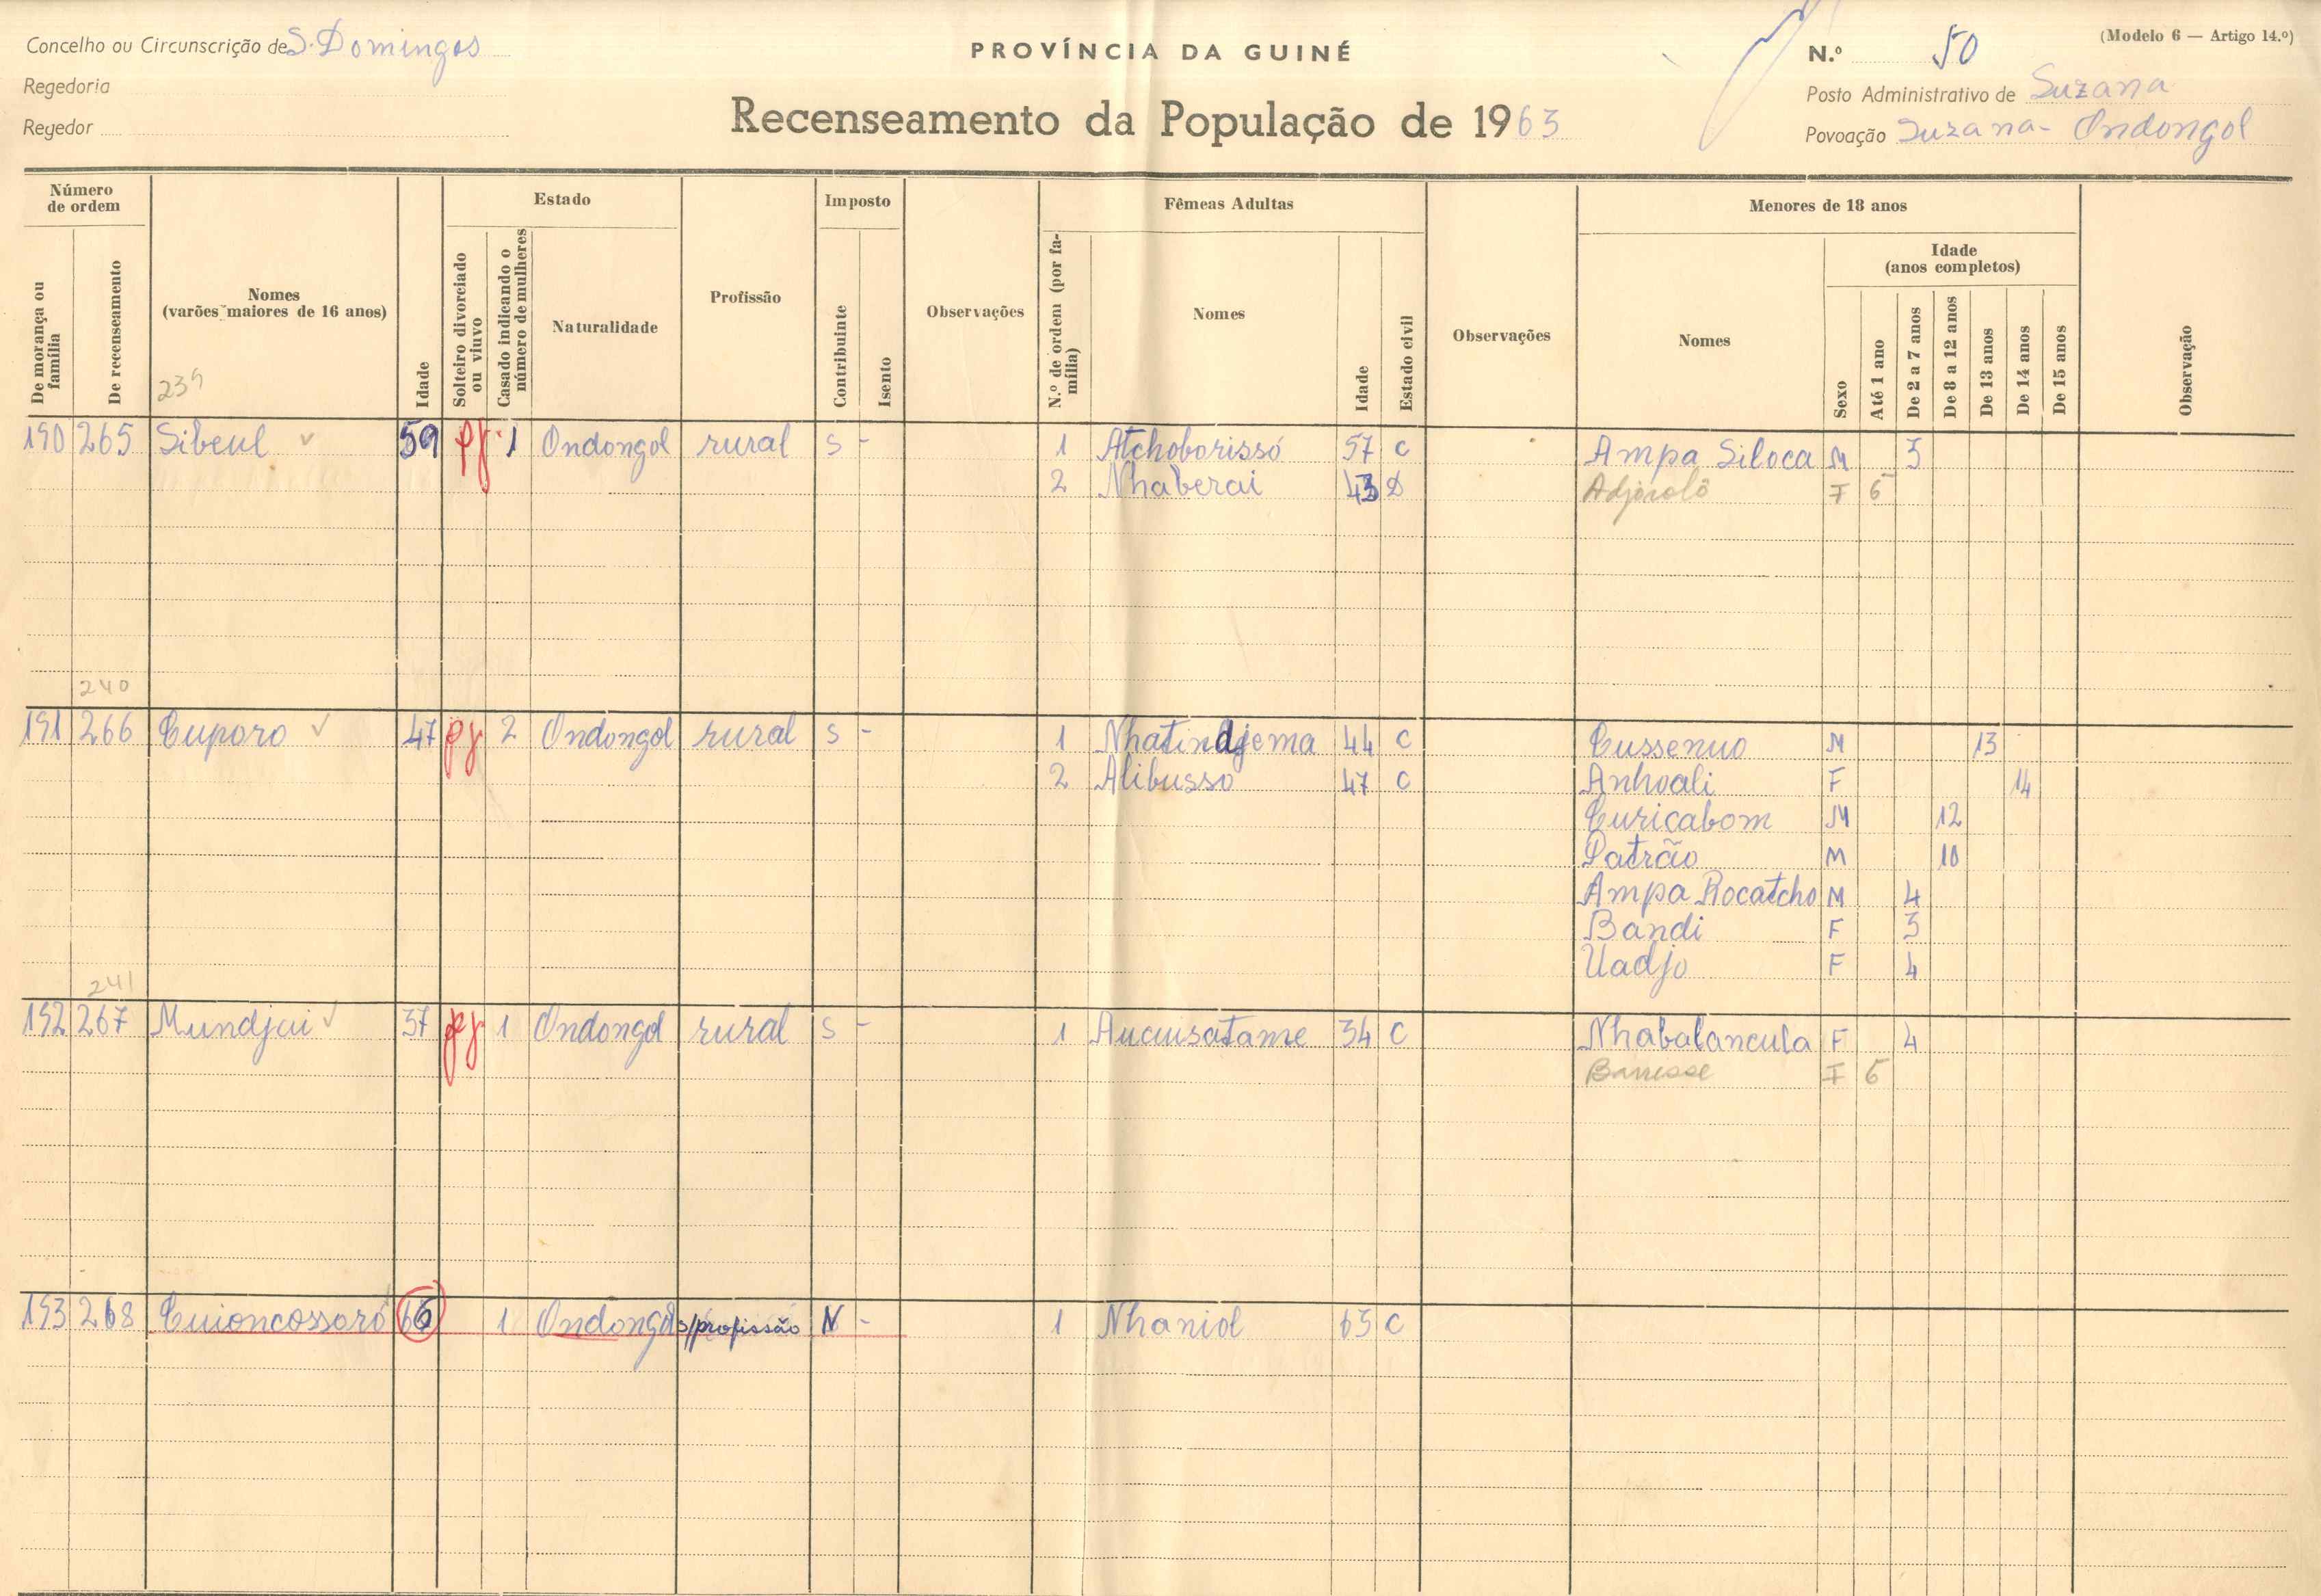 Concelho ou Circunscrição de S. Domingos
Regedoria
Regedor
PROVÍNCIA DA GUINÉ
Recenseamento da População de 1963
(Modelo 6 — Artigo 14.º)
N.º 50
Posto Administrativo de Suzana
Povoação Suzana - Ondongol
Número de ordem
De morança ou família
De recenseamento
Nomes
(varões maiores de 16 anos)
239
Idade
Estado
Solteiro divorciado ou viuvo
Casado indicando o número de mulheres
Naturalidade
Profissão
Imposto
Contribuinte
Isento
Observações
Fêmeas Adultas
N.º de ordem (por família)
Nomes
Idade
Estado civil
Observações
Menores de 18 anos
Nomes
Sexo
Idade
(anos completos)
Até 1 ano
De 2 a 7 anos
De 8 a 12 anos
De 13 anos
De 14 anos
De 15 anos
Observação
190 265 Sibeul 59 pg 1 Ondongol rural S - 1 Atchoborissó 57 C Ampa Siloca M 3
2 Nhaberai 43 F 6
240
191 266 Cuporo 47 pg 2 Ondongol rural S - 1 Nhatindjema 44 C Cussenuo M 13
2 Alibusso 47 C Anhoali F 14
Curicabom M 12
Patrão M 10
Ampa Rocatcho M 4
Bandi F 3
Uadjo F 4
241
192 267 Mundjai 37 pg 1 Ondongol rural S - 1 Aucuisatame 34 C Nhabalancula F 4
F 6
193 268 Cuioncossoró 66 1 Ondongol s/profissão N - 1 Nhaniol 63 C